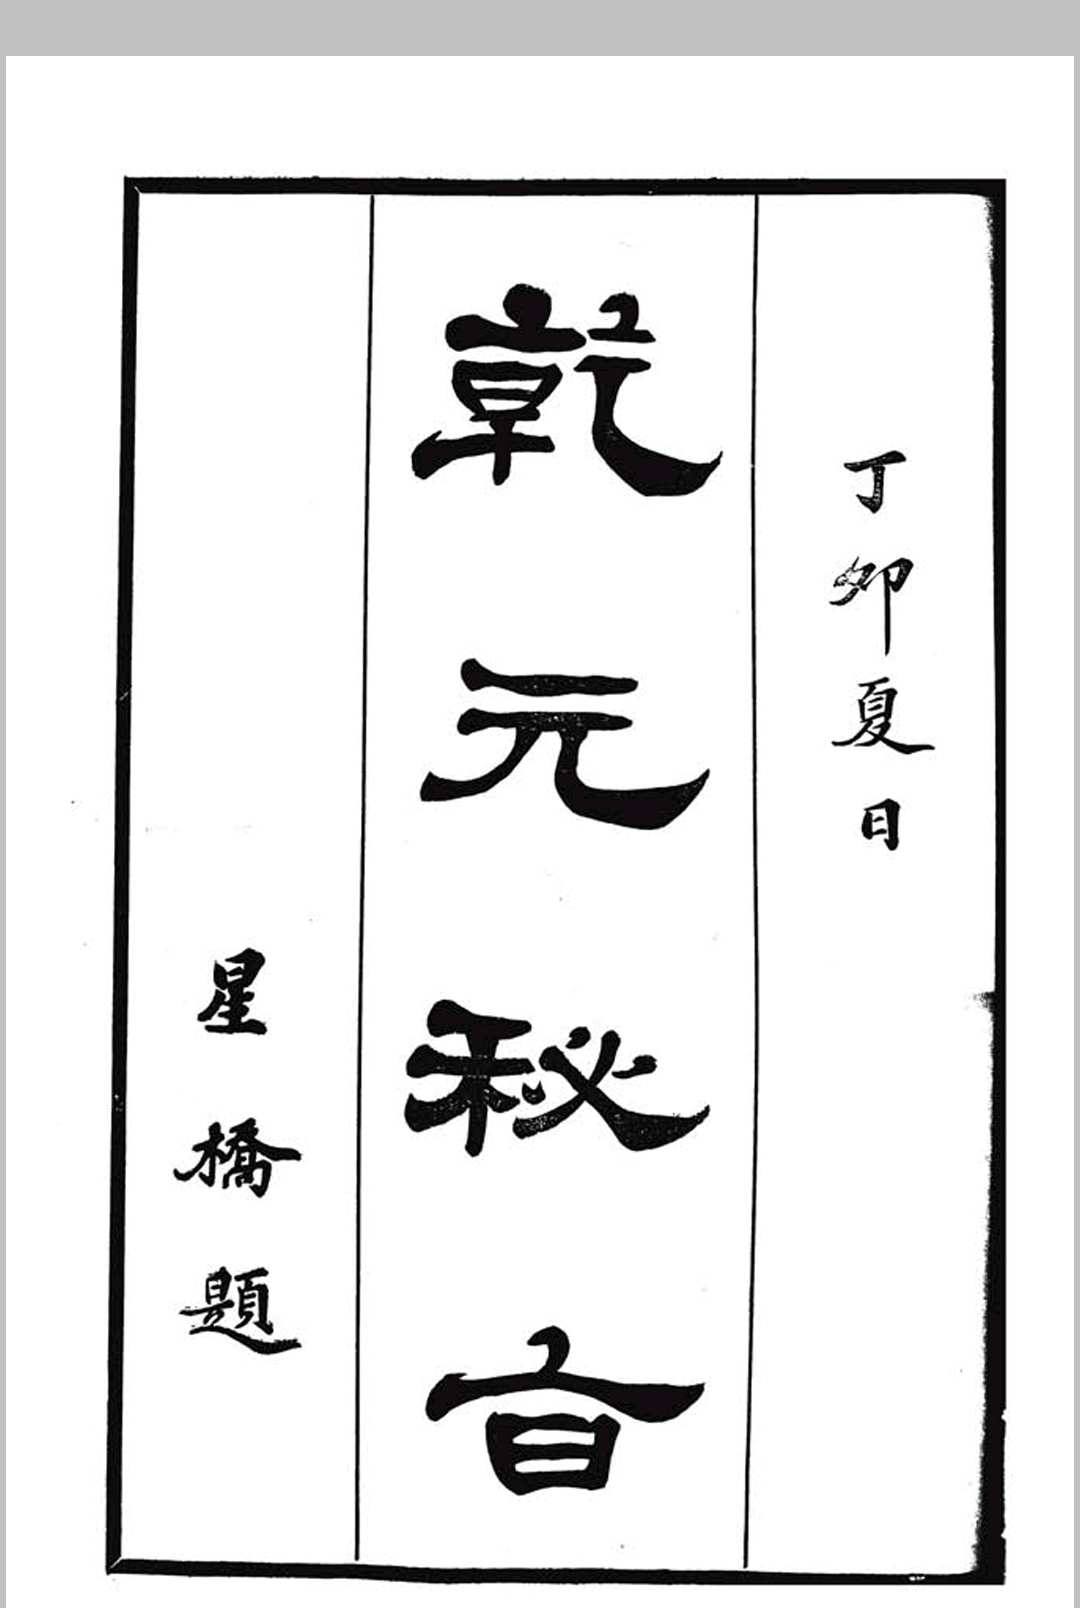 丁卯夏日
乾元秘旨
星橋題